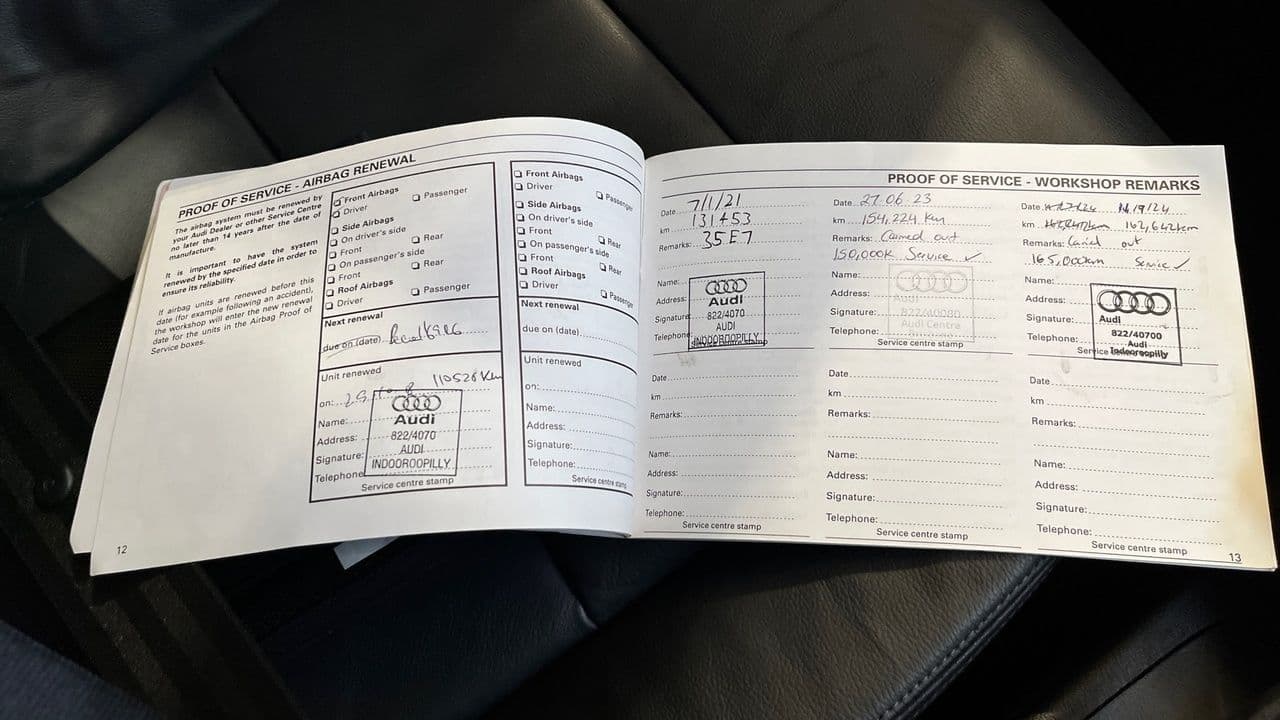 PROOF OF SERVICE - AIRBAG RENEWAL
The airbag system must be renewed by
your Audi Dealer or other Service Centre
no later than 14 years after the date of
manufacture.
It is important to have the system
renewed by the specified date in order to
ensure its reliability.
If airbag units are renewed before this
date (for example following an accident),
the workshop will enter the new renewal
date for the units in the Airbag Proof of
Service boxes.
12
Front Airbags
Driver
Passenger
Side Airbags
On driver's side
Front
Rear
On passenger's side
Front
Rear
Roof Airbags
Driver
Passenger
Next renewal
due on (date)
Unit renewed
on: 110526 Km
Name:
Address:
Signature:
Telephone
Audi
822/4070
AUDI
INDOOROOPILLY
Service centre stamp
Front Airbags
Driver
Passenger
Side Airbags
On driver's side
Front
Rear
On passenger's side
Front
Rear
Roof Airbags
Driver
Passenger
Next renewal
due on (date)
Unit renewed
on:
Name:
Address:
Signature:
Telephone:
Service centre stamp
PROOF OF SERVICE - WORKSHOP REMARKS
Date 7/1/21
km 131453
Remarks: 35E7
Name:
Address:
Signature
Telephone
Audi
822/4070
AUDI
INDOOROOPILLY
Date 27.06.23
km 154,224 km
Remarks: Carried out
150,000K Service ✓
Name:
Address:
Signature:
Telephone:
Audi
Audi Centre
Service centre stamp
Date 19/24
km 162,642km
Remarks: out
165,000km Service ✓
Name:
Address:
Signature:
Telephone:
Audi
822/40700
Audi
Indooroopilly
Date
km
Remarks:
Name:
Address:
Signature:
Telephone:
Service centre stamp
Date
km
Remarks:
Name:
Address:
Signature:
Telephone:
Service centre stamp
Date
km
Remarks:
Name:
Address:
Signature:
Telephone:
Service centre stamp
13